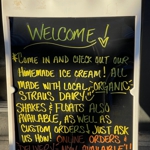 WELCOME!
*COME IN AND CHECK OUT OUR
HOMEMADE ICE CREAM! ALL
MADE WITH LOCAL, ORGANIC
STRAUS DAIRY.
SHAKES & FLOATS ALSO
AVAILABLE, AS WELL AS
CUSTOM ORDERS! JUST ASK
US HOW! ONLINE ORDERS &
NOW AVAILABLE!